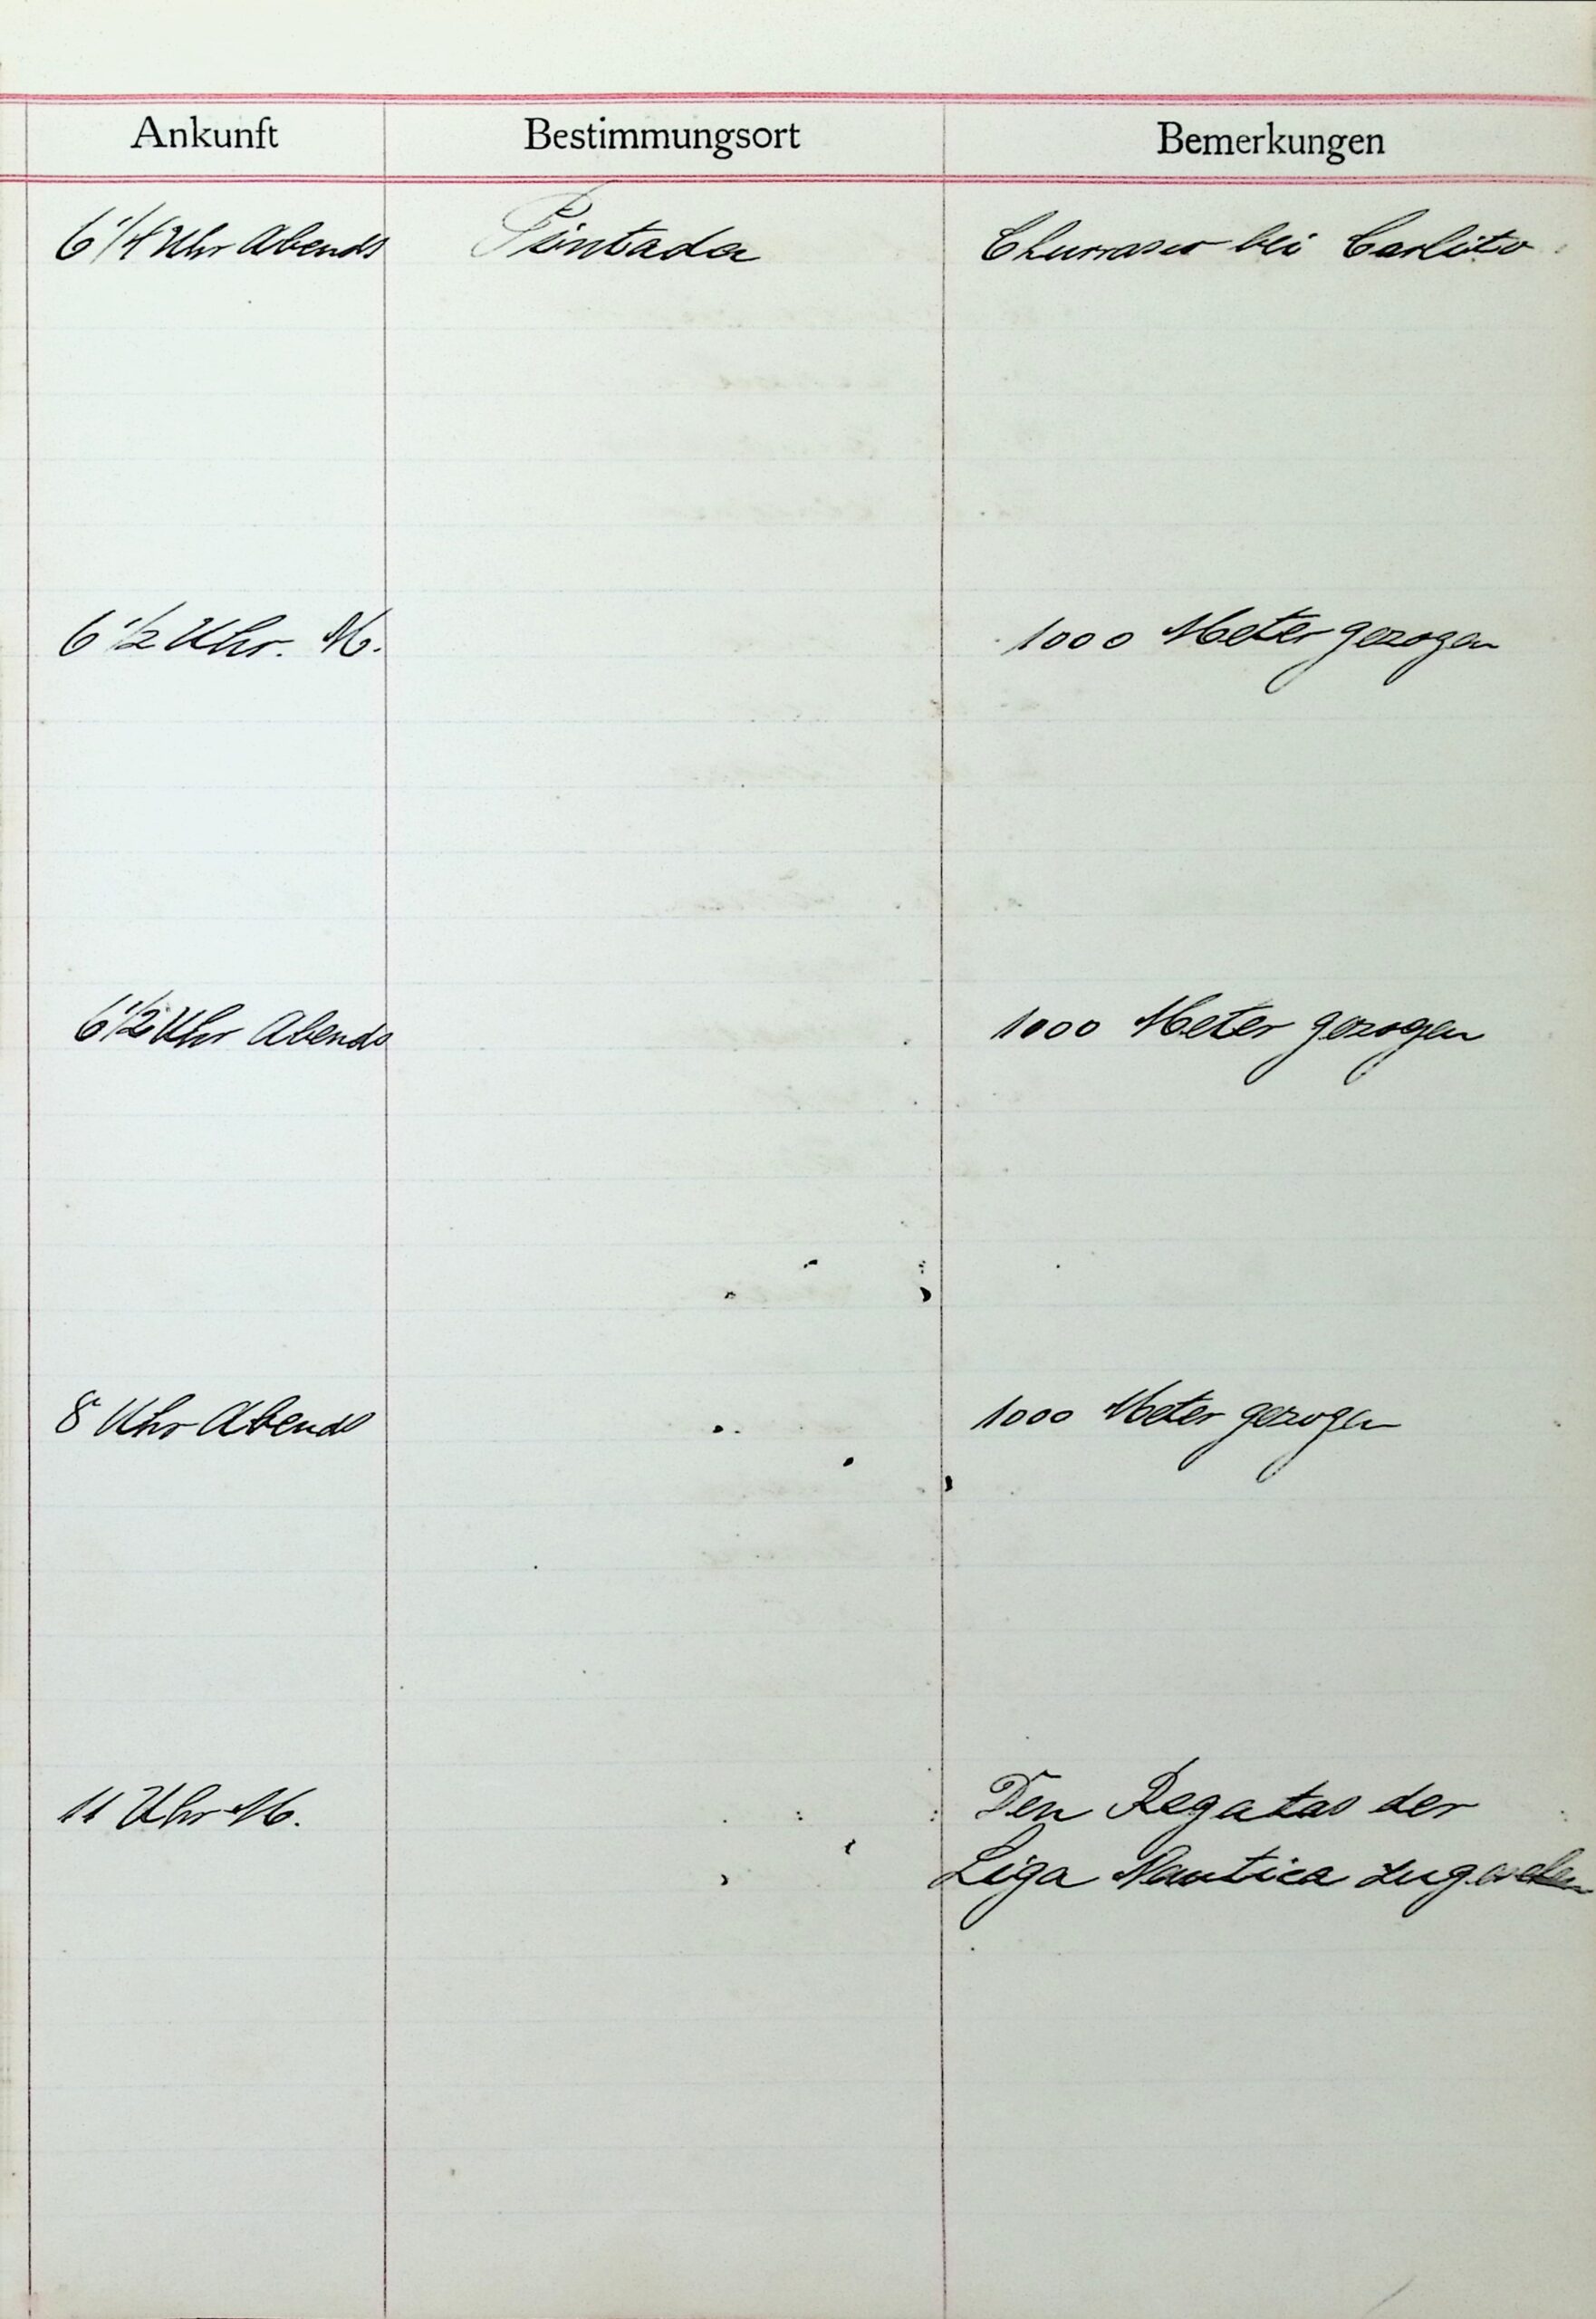 Ankunft Bestimmungsort Bemerkungen
6 1/4 Uhr Abends Pintada Churrasco bei Carlito
6 1/2 Uhr. M. 1000 Meter gezogen
6 1/2 Uhr Abends 1000 Meter gezogen
8 Uhr Abends 1000 Meter gezogen
11 Uhr M. Den Regatas der
Liga Nautica